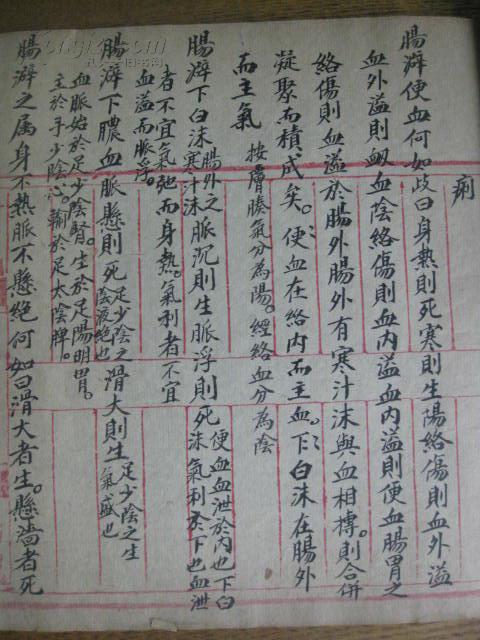 痢
腸澼便血何如歧曰身熱則死寒則生陽絡傷則血外溢
血外溢則衂血陰絡傷則血內溢血內溢則便血腸胃之
絡傷則血溢於腸外腸外有寒汁沫與血相搏則合併
凝聚而積成矣。便血在絡內而主血。下白沫在腸外
而主氣 按膚腠氣分為陽。經絡血分為陰
腸澼下白沫 腸外之寒汁沫 脈沉則生脈浮則死 便血血泄於內也下白沫氣利於下也血泄
者不宜氣弛而身熱。氣利者不宜
血溢而脈浮。
腸澼下膿血脈懸則死 足少陰之陰液絕也 滑大則生 足少陰之生氣盛也
血脈始於足少陰腎。生於足陽明胃。
主於手少陰心。輸於足太陰脾。
腸澼之属身不熱脈不懸絕何如曰滑大者生。懸濇者死